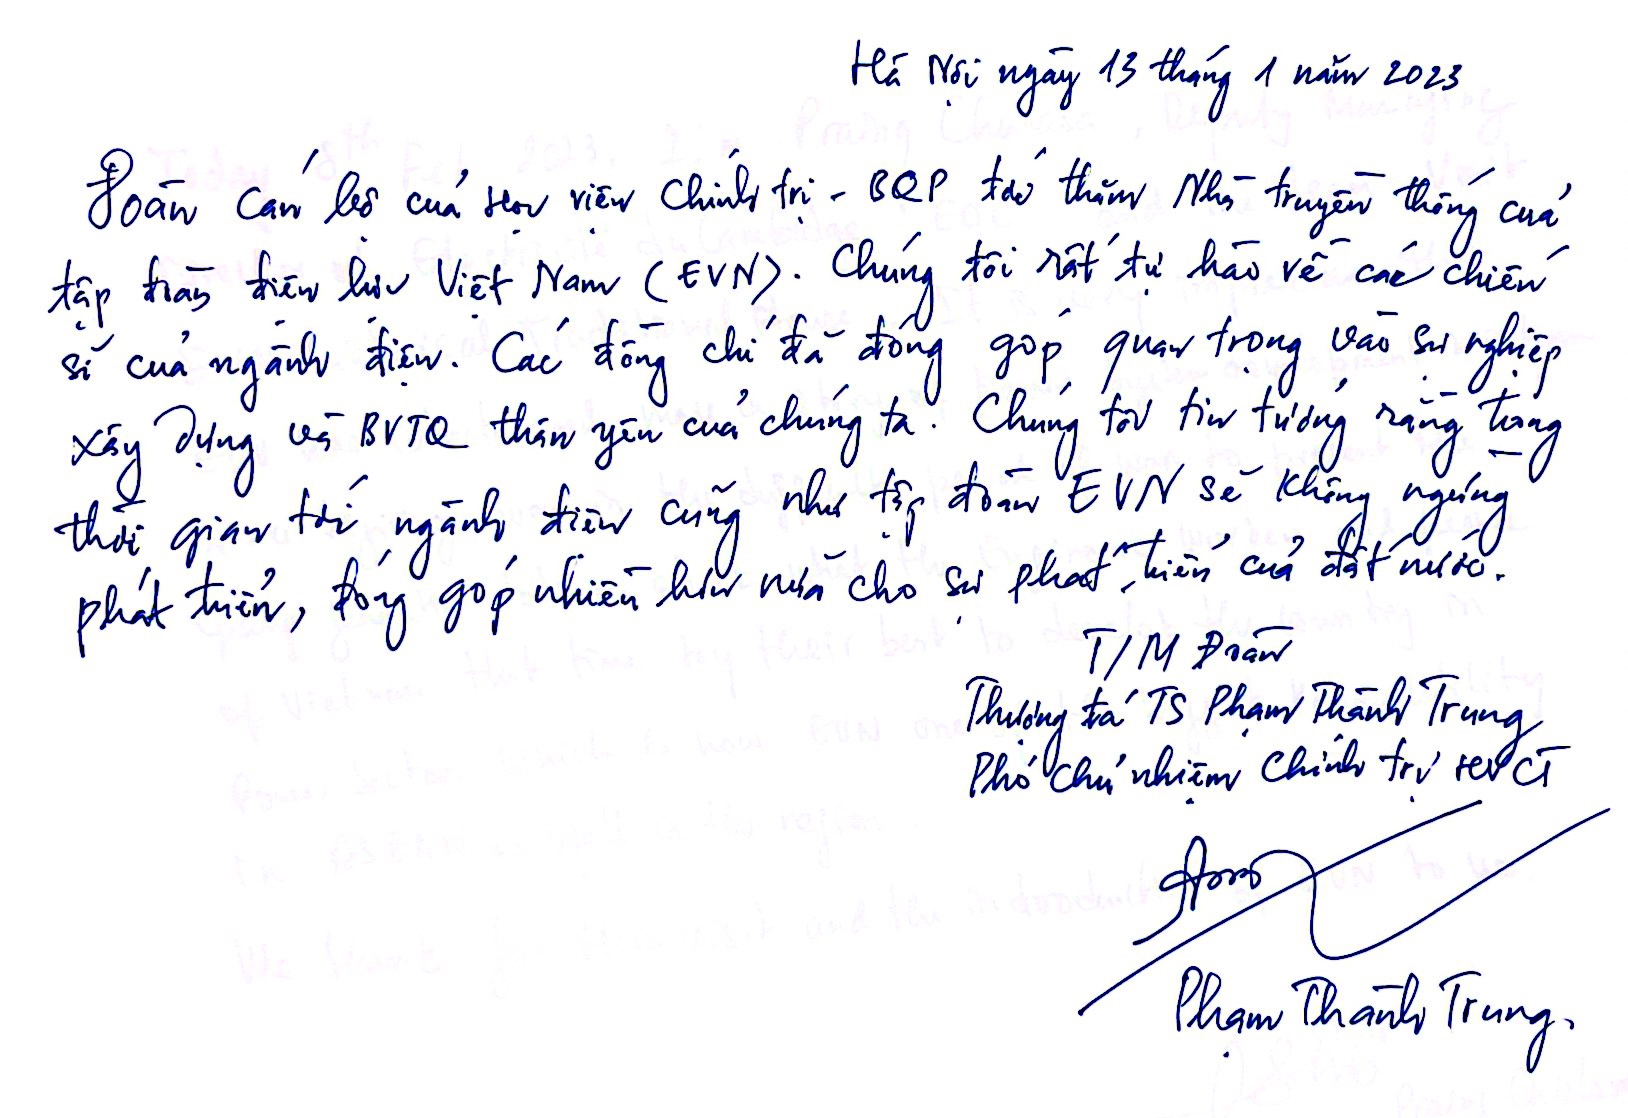 Hà Nội ngày 13 tháng 1 năm 2023
Đoàn Cán bộ của Học viện Chính trị - BQP tới thăm Nhà truyền thống của
tập đoàn điện lực Việt Nam (EVN). Chúng tôi rất tự hào về các chiến
sĩ của ngành điện. Các đồng chí đã đóng góp quan trọng vào sự nghiệp
xây dựng và BVTQ thân yêu của chúng ta. Chúng tôi tin tưởng rằng trong
thời gian tới ngành điện cũng như tập đoàn EVN sẽ không ngừng
phát triển, đóng góp nhiều hơn nữa cho sự phát triển của đất nước.
T/M Đoàn
Thượng tá TS Phạm Thành Trung
Phó Chủ nhiệm Chính trị HVCT
Phạm Thành Trung.